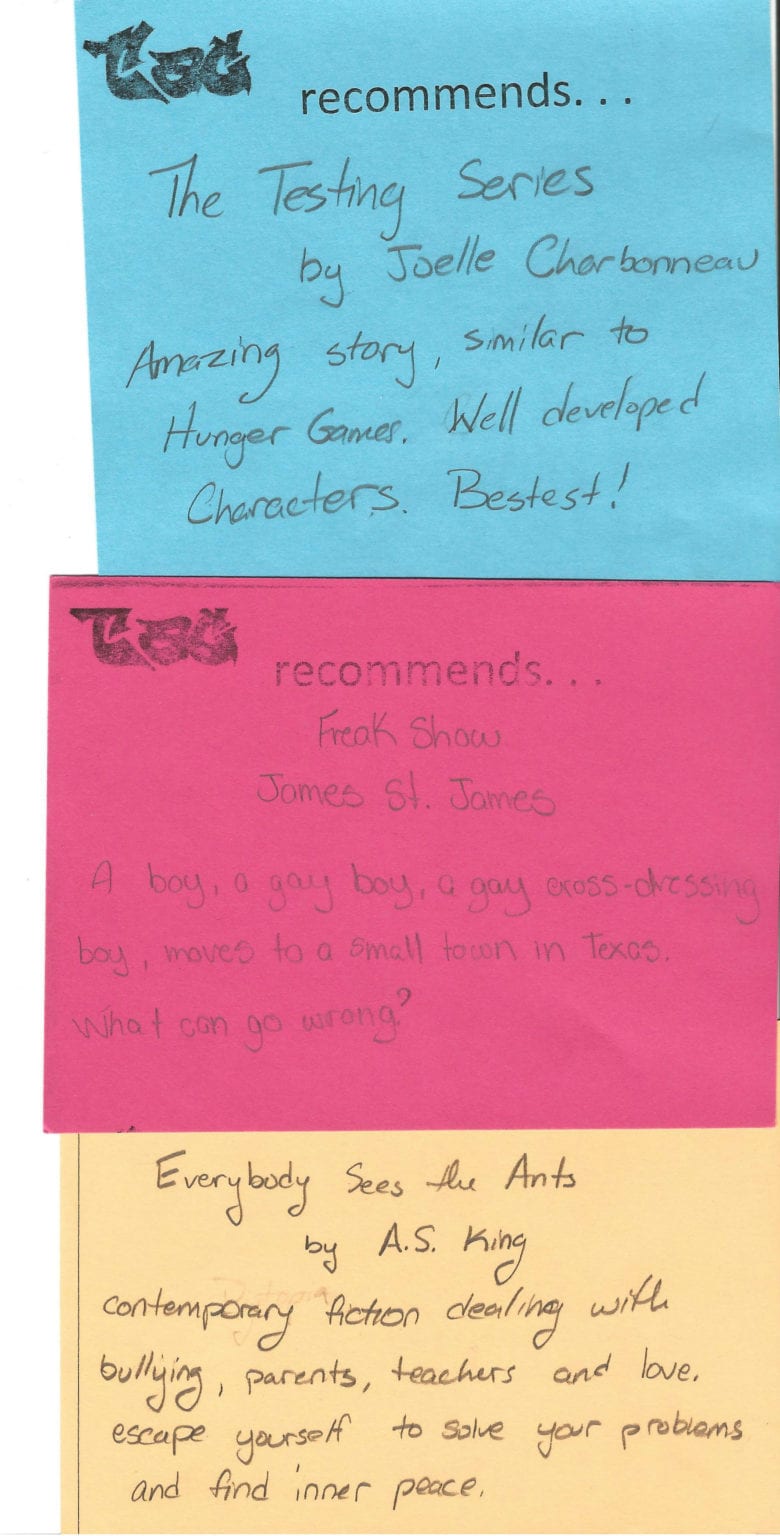 recommends. . .
The Testing Series
by Joelle Charbonneau
Amazing story, similar to
Hunger Games. Well developed
Characters. Bestest!
recommends. . .
Freak Show
James St. James
A boy, a gay boy, a gay cross-dressing
boy, moves to a small town in Texas.
What can go wrong?
Everybody Sees the Ants
by A.S. King
contemporary fiction dealing with
bullying, parents, teachers and love.
escape yourself to solve your problems
and find inner peace.